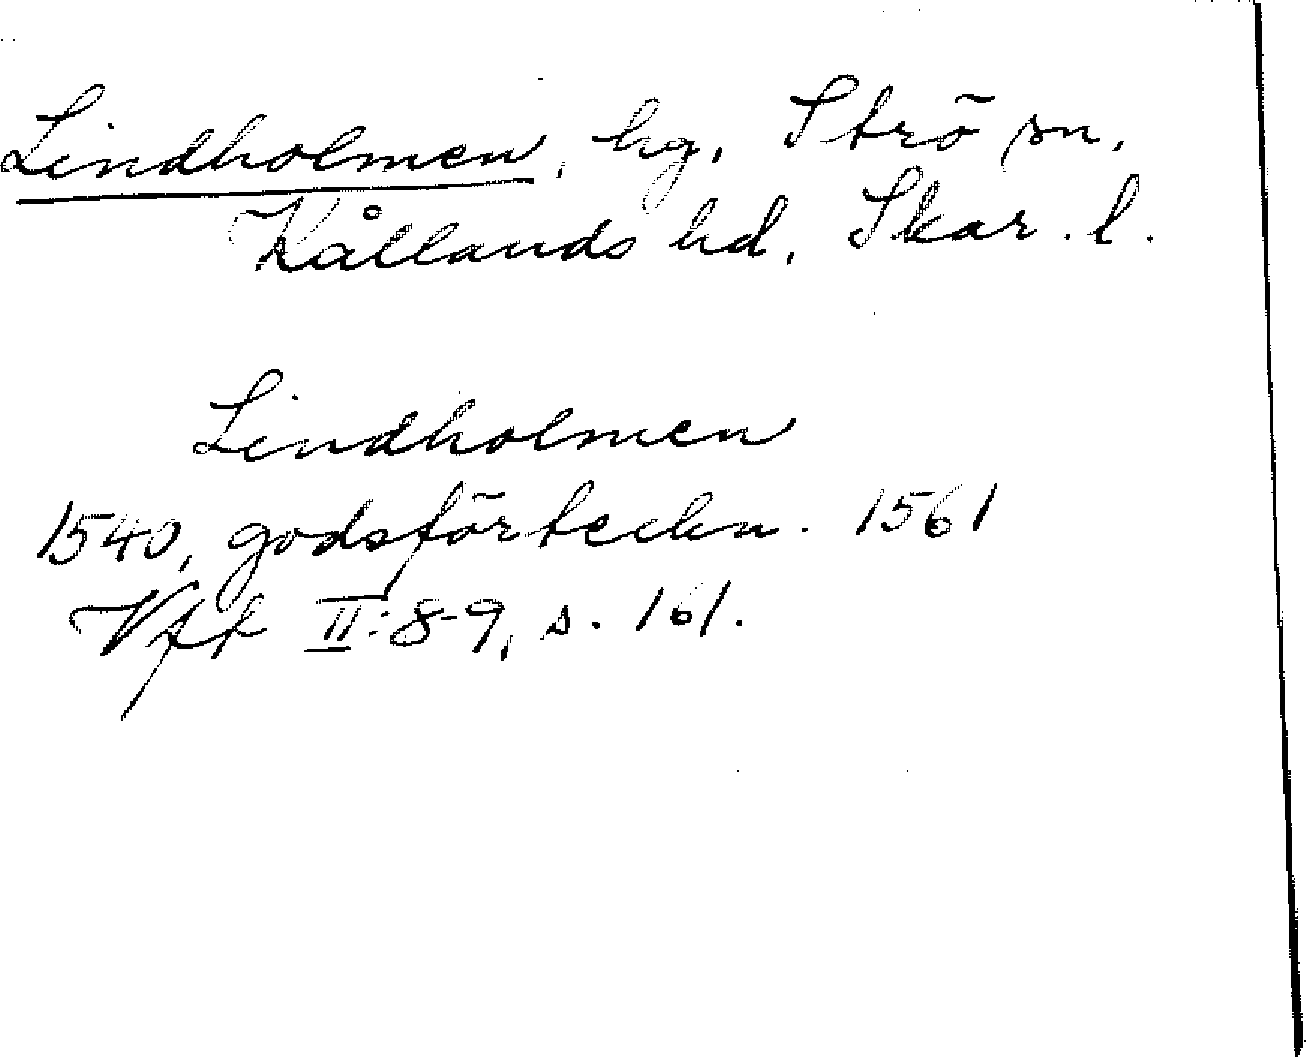 Lindholmen, hg, Strö sn,
Kållands hd, Skar. l.
Lindholmen
1540, godsförteckn. 1561
Vff II:8-9, s. 161.